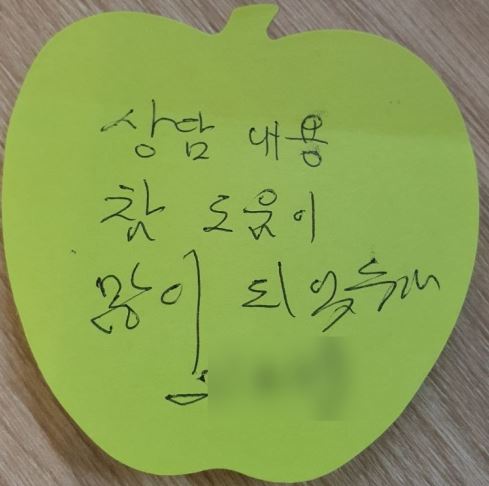 상담 내용
참 도움이
많이 되었